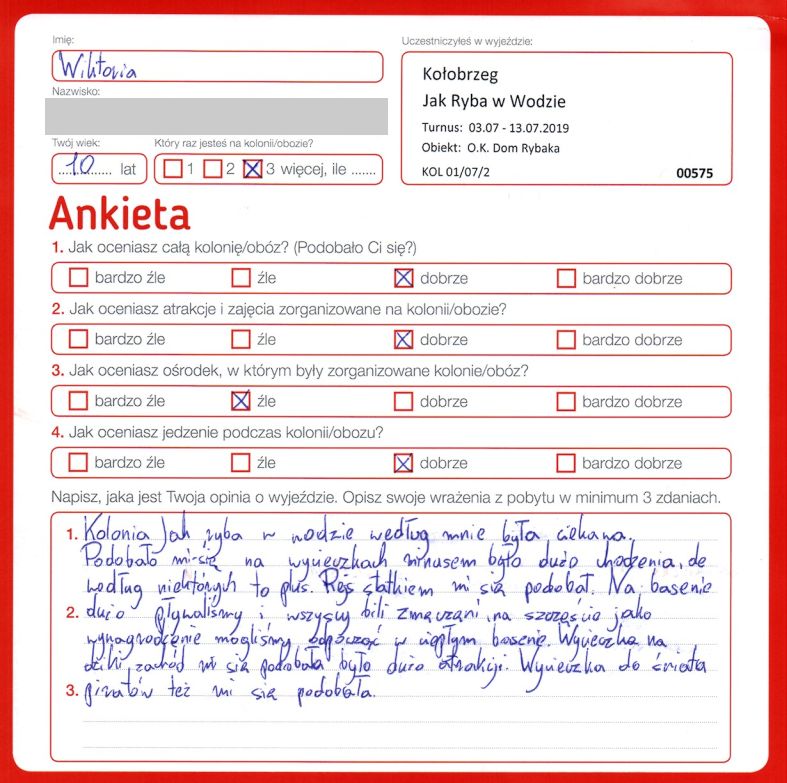 Imię:
Uczestniczyłeś w wyjeździe:
Wiktoria
Kołobrzeg
Jak Ryba w Wodzie
Turnus: 03.07 - 13.07.2019
Obiekt: O.K. Dom Rybaka
KOL 01/07/2 00575
Nazwisko:
Twój wiek: Który raz jesteś na kolonii/obozie?
10 lat 1 2 3 więcej, ile .......
Ankieta
1. Jak oceniasz całą kolonię/obóz? (Podobało Ci się?)
bardzo źle źle dobrze bardzo dobrze
2. Jak oceniasz atrakcje i zajęcia zorganizowane na kolonii/obozie?
bardzo źle źle dobrze bardzo dobrze
3. Jak oceniasz ośrodek, w którym były zorganizowane kolonie/obóz?
bardzo źle źle dobrze bardzo dobrze
4. Jak oceniasz jedzenie podczas kolonii/obozu?
bardzo źle źle dobrze bardzo dobrze
Napisz, jaka jest Twoja opinia o wyjeździe. Opisz swoje wrażenia z pobytu w minimum 3 zdaniach.
1. Kolonia Jak ryba w wodzie według mnie była ciekawa.
Podobało mi się na wycieczkach minusem było dużo chodzenia, ale
według niektórych to plus. Rejs statkiem mi się podobał. Na basenie
2. dużo pływaliśmy i wszyscy bili zmączani, na szczęście jako
wynagrodzenie mogliśmy odpocząć w ciepłym basenie. Wycieczka na
dziki zachód mi się podobała było dużo atrakcji. Wycieczka do świata
3. piratów też mi się podobała.